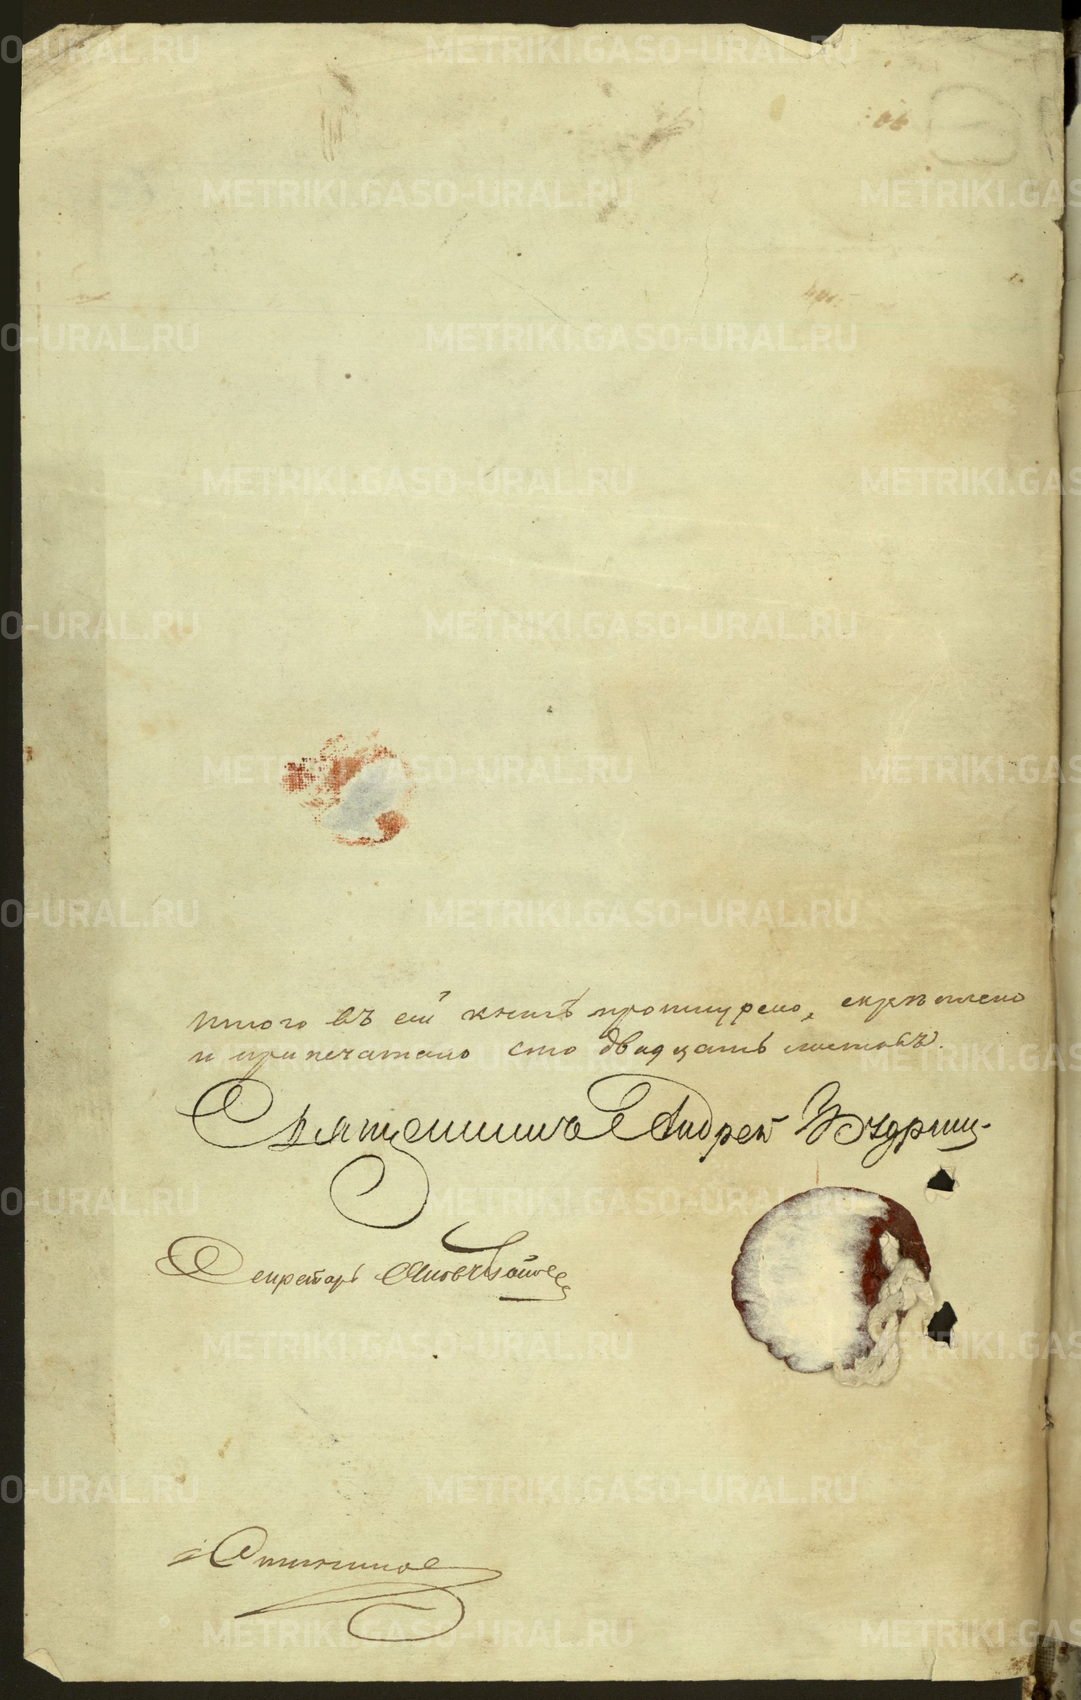 METRIKI.GASO-URAL.RU
Итого въ сей книгѣ прошнурено, скрѣплено
и припечатано сто двадцать листовъ.
Священникъ Андрей
Секретарь